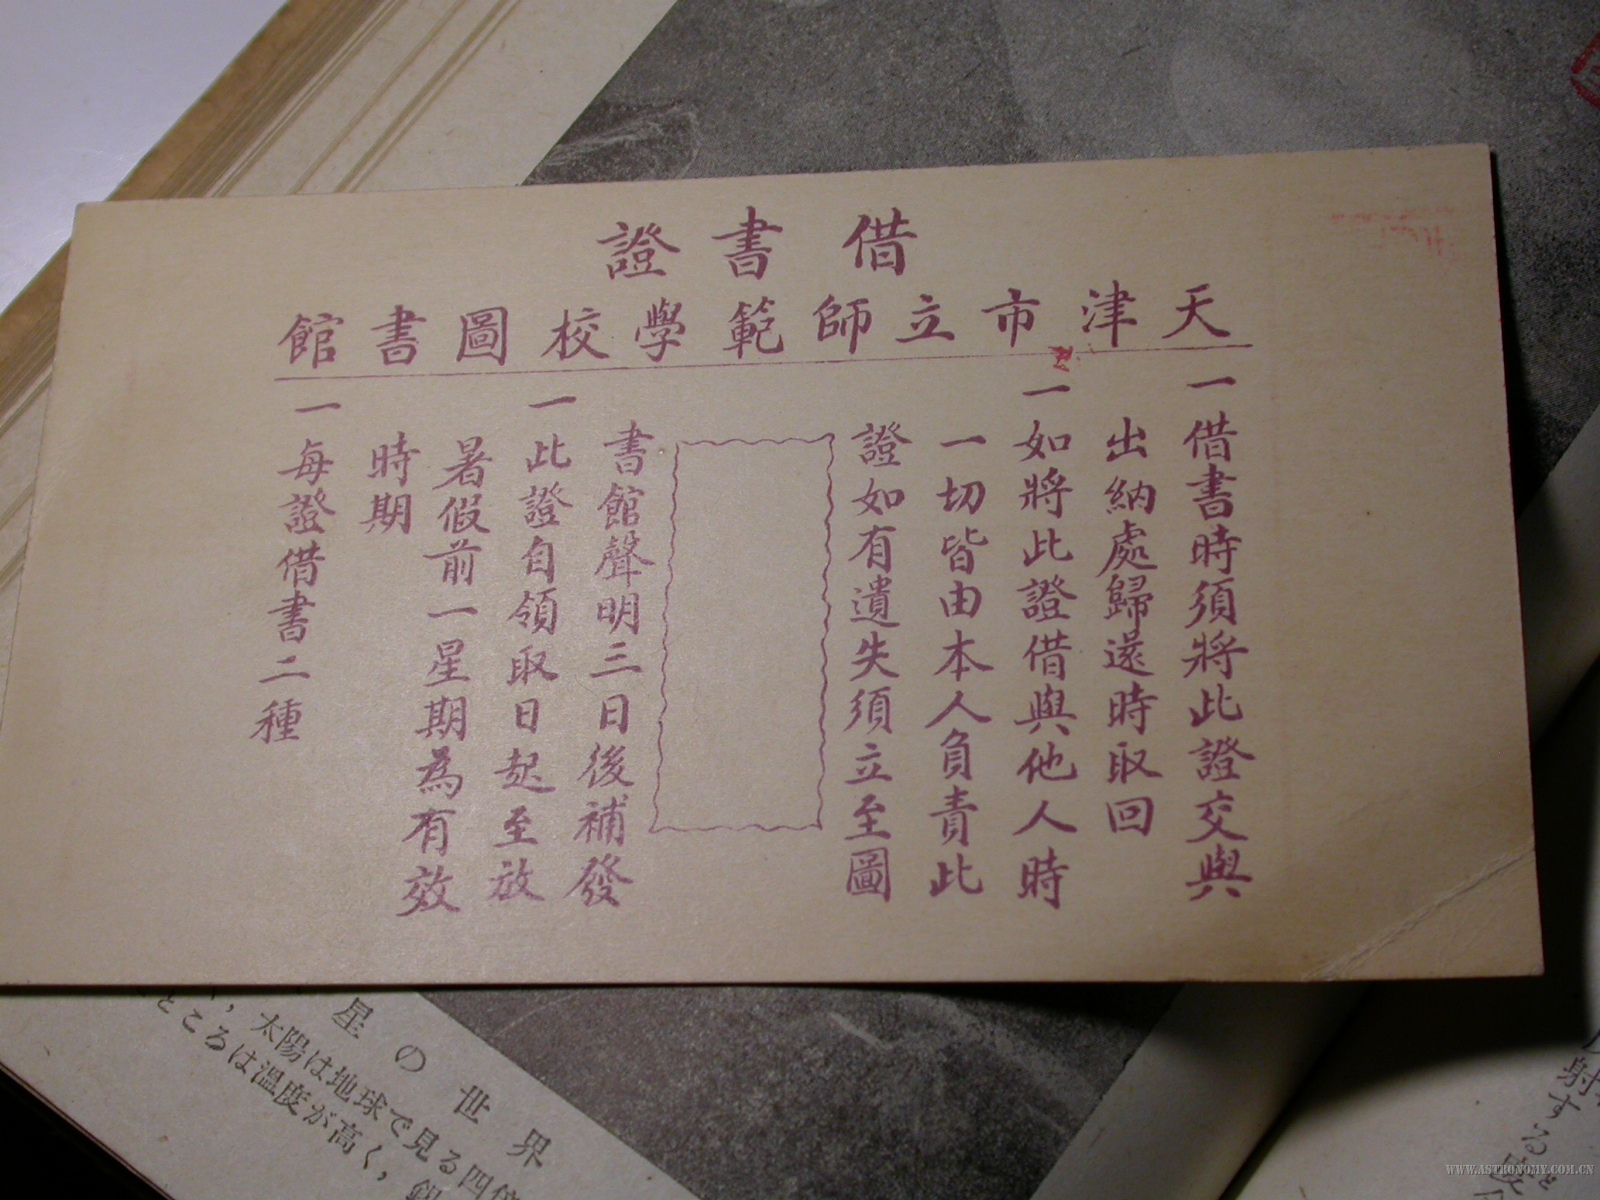 借書證
天津市立師範學校圖書館
一借書時須將此證交與
出納處歸還時取回
一如將此證借與他人時
一切皆由本人負責此
證如有遺失須立至圖
書館聲明三日後補發
一此證自領取日起至放
暑假前一星期為有效
時期
一每證借書二種
星の世界
太陽は地球で見る四倍
ところは溫度が高く，銀
射する
WWW.ASTRONOMY.COM.CN